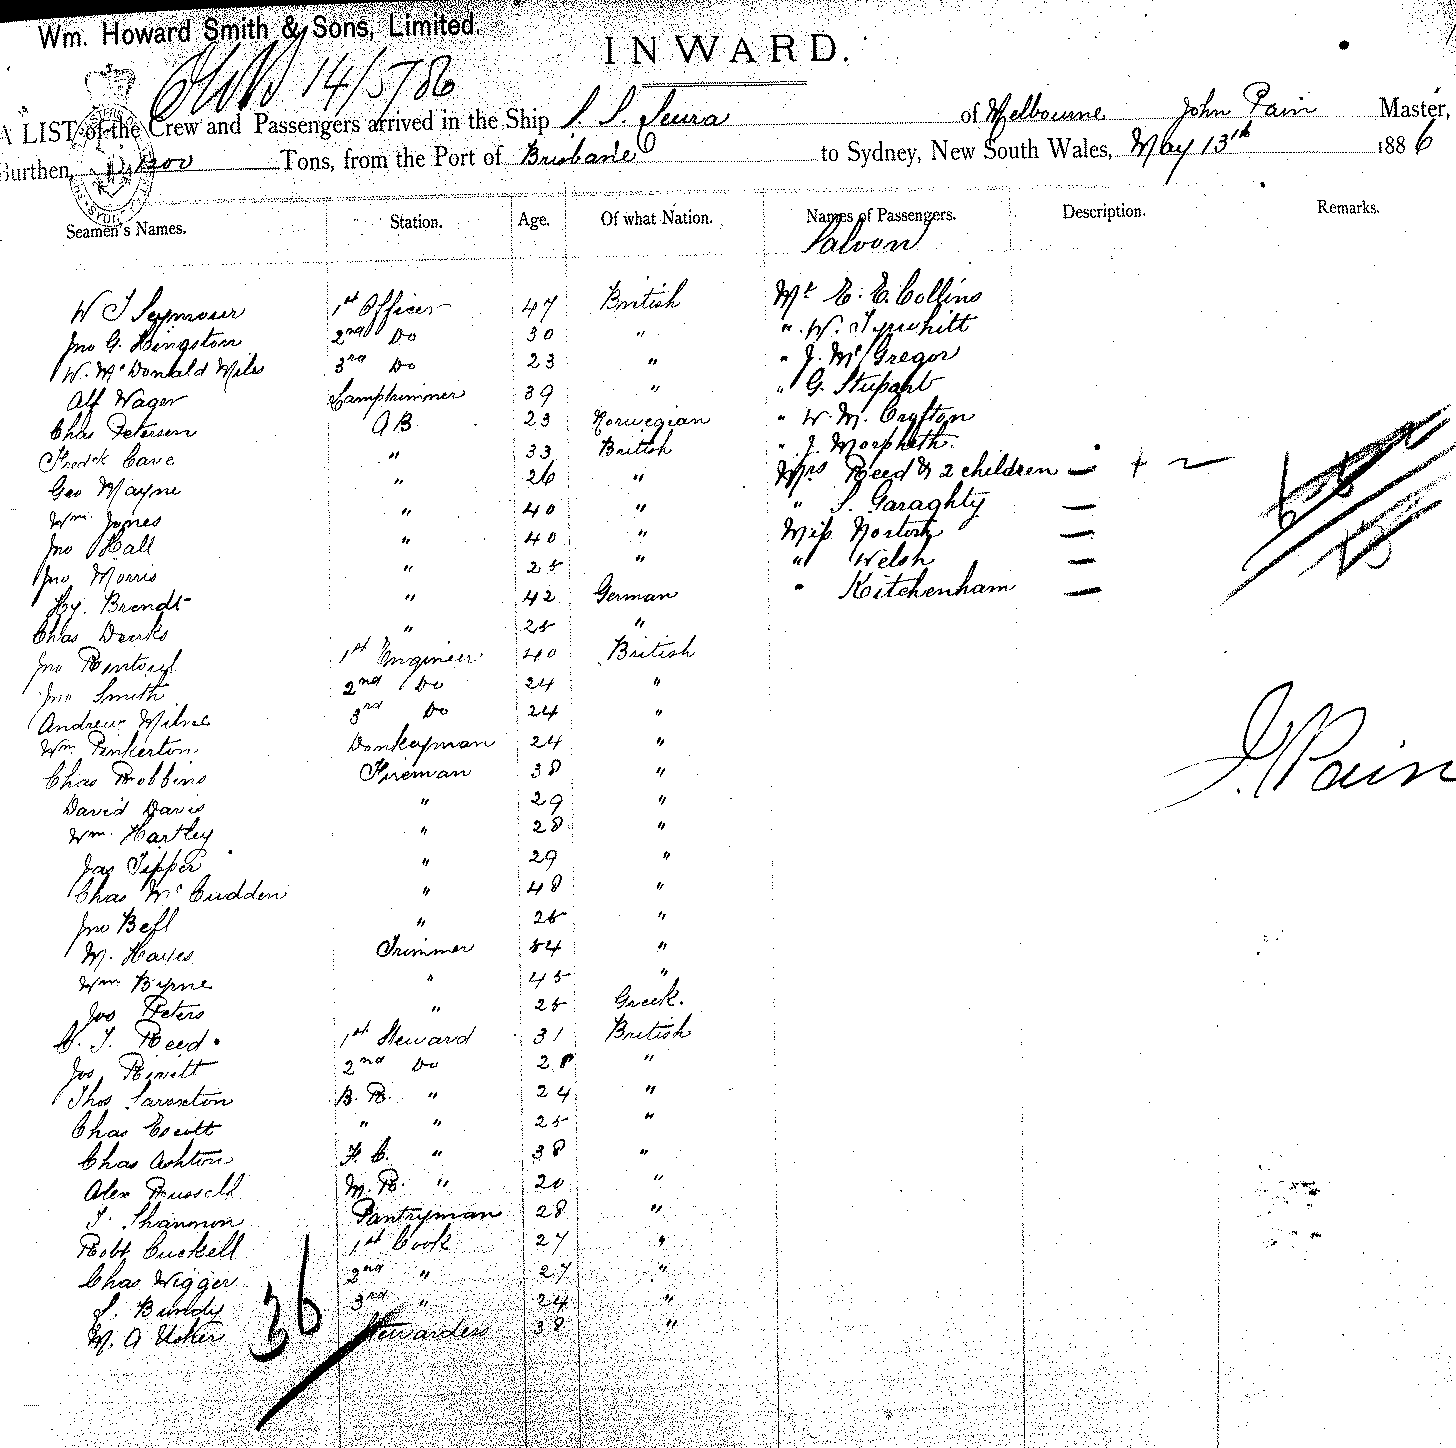 Wm. Howard Smith & Sons, Limited.
INWARD.
14/5/86
A LIST of the Crew and Passengers arrived in the Ship S. S. of Melbourne John Pain Master,
Burthen, 1200 Tons, from the Port of Brisbane to Sydney, New South Wales, May 13th 1886
Seamen's Names. Station. Age. Of what Nation. Names of Passengers. Description. Remarks.
Saloon
W J Seymour 1st Officer 47 British Mr E. E. Collins
Jno G. Kingston 2nd Do 30 " " W. Tyrwhitt
W. McDonald Miles 3rd Do 23 " " J. McGregor
Alf Wager Lamptrimmer 39 " " G. Stupart
Chas Petersen AB 23 Norwegian " W. M. Crofton
Fredck Cave " 33 British " J. Morpheth
Geo Mayne " 26 " Mrs Reed & 2 children — + ~
Wm Jones " 40 " " S. Garaghty —
Jno Hall " 40 " Miss Norton —
Jno Morris " 25 " " Welsh —
Hy. Brendt " 42 German " Kitchenham —
Chas Deerks " 25 "
Jno Rentoul 1st Engineer 40 British
Jno Smith 2nd Do 24 "
Andrew Milne 3rd Do 24 "
Wm Pinkerton Donkeyman 24 "
Chas Robbins Fireman 38 "
David Davis " 29 "
Wm Hartley " 28 "
Jas Tipper " 29 "
Chas McCudden " 48 "
Jno Bell " 25 "
M. Hayes Trimmer 54 "
Wm Byrne " 45 "
Jos Peters " 25 Greek.
J. Reed 1st Steward 31 British
Jos Rivett 2nd Do 28 "
Thos B. R. " 24 "
Chas Escott " " 25 "
Chas Ashton F. C. " 38 "
Alex Russell M. R. " 20 "
T. Shannon Pantryman 28 "
Robt Cuckell 1st Cook 27 "
Chas Wigger 2nd " 27 "
S. Bundy 3rd " 24 "
M. A Usher Stewardess 38 "
36
J. Pain